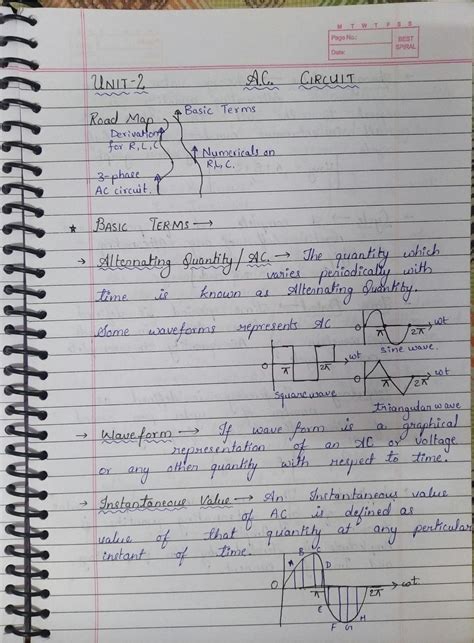 M T W T F S S
Page No.:
Date:
BEST
SPIRAL
UNIT-2 A.C. CIRCUIT
Road Map
Basic Terms
Derivation
for R, L, C
Numericals on
R, L, C.
3-phase
AC circuit.
* BASIC TERMS →
→ Alternating Quantity / AC. → The quantity which
varies periodically with
time is known as Alternating Quantity.
Some waveforms represents AC
0 π 2π ωt
sine wave.
0 π 2π ωt
square wave
0 π 2π ωt
triangular wave
→ Waveform → If wave form is a graphical
representation of an AC or voltage
or any other quantity with respect to time.
→ Instantaneous Value → An Instantaneous value
of AC is defined as
value of that quantity at any perticular
instant of time.
A B C D
0 π 2π ωt
E F G H